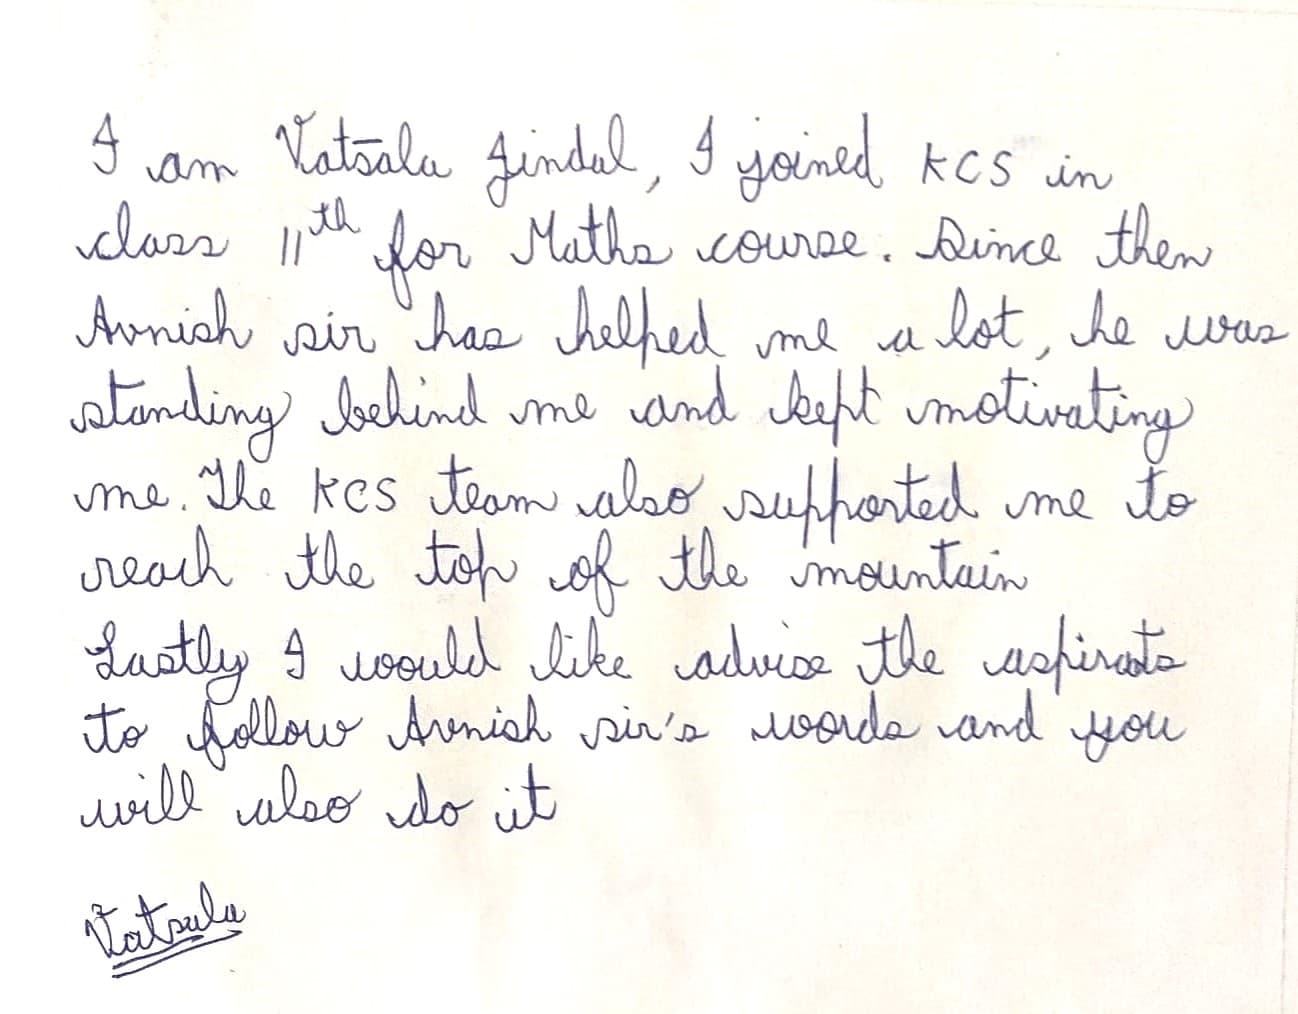 I am Vatsala Jindal, I joined KCS in
class 11th for Maths course. Since then
Avnish sir has helped me a lot, he was
standing behind me and kept motivating
me. The KCS team also supported me to
reach the top of the mountain
Lastly I would like advise the aspirats
to follow Avnish sir's words and you
will also do it
Vatsala